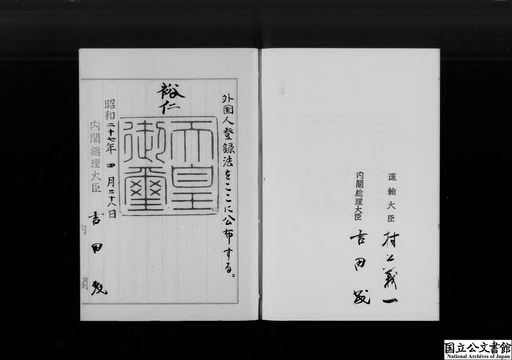 運輸大臣 村上義一
内閣総理大臣 吉田茂
外国人登録法をここに公布する。
裕仁
天皇
御璽
昭和二十七年四月二十八日
内閣総理大臣 吉田茂
国立公文書館
National Archives of Japan